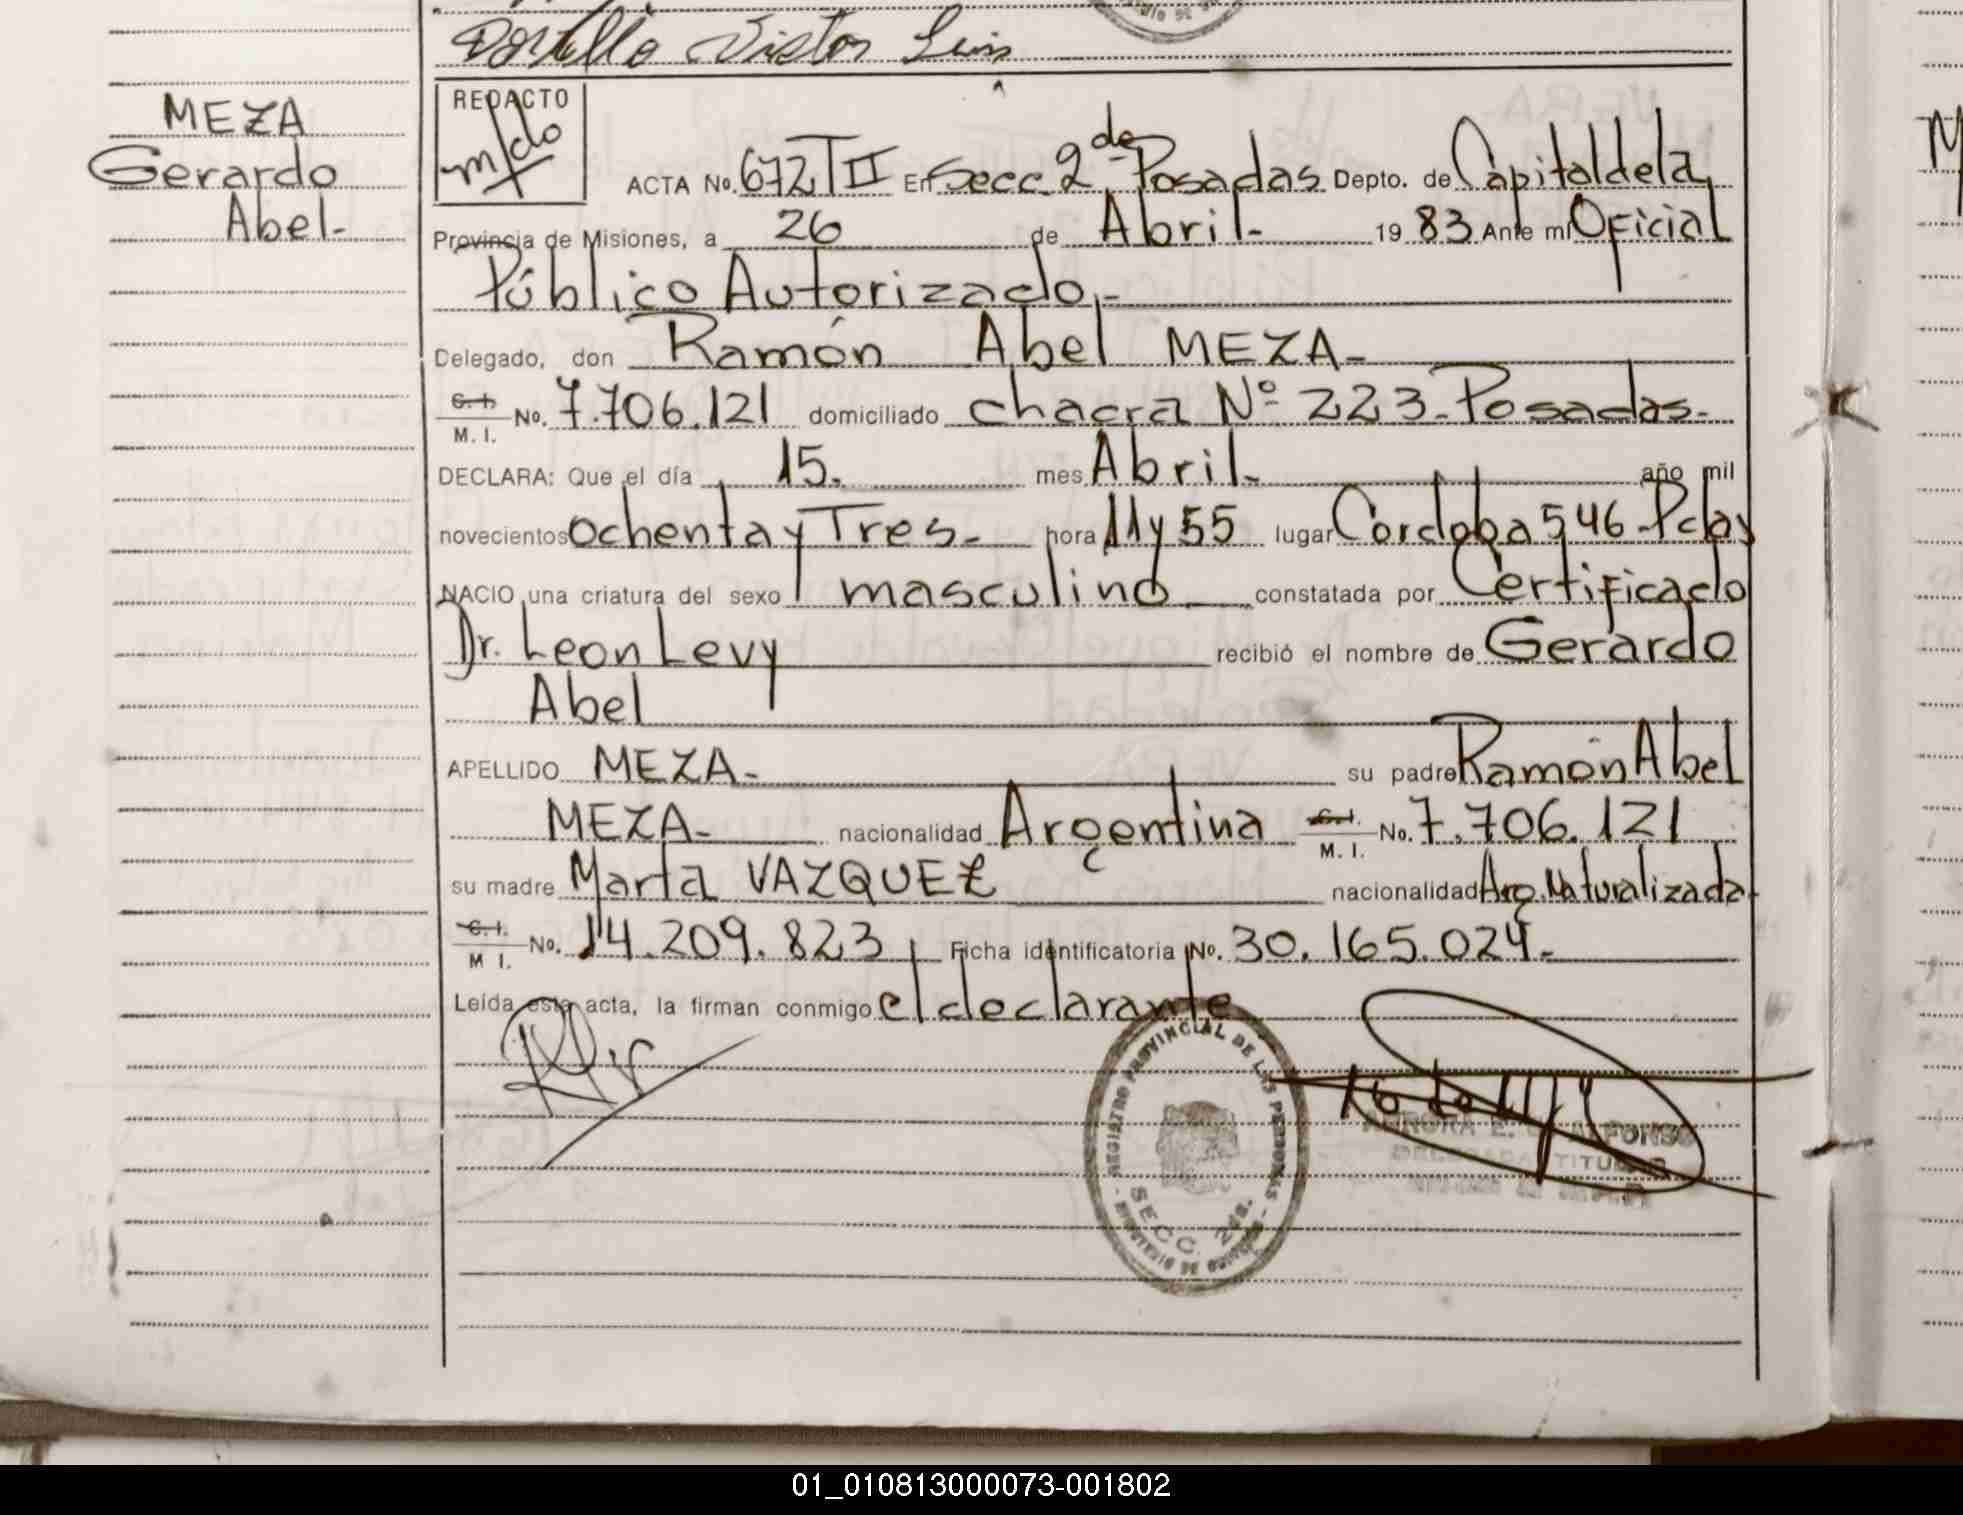 Portillo Victor Luis
MEZA
Gerardo
Abel-
REDACTO
ACTA No. 672 T II En Secc. 2da Posadas Depto. de Capital de la
Provincia de Misiones, a 26 de Abril- 19 83 Ante mi Oficial
Público Autorizado.-
Delegado, don Ramón Abel MEZA-
C. I.
M. I.
No. 7.706.121 domiciliado chacra Nº 223-Posadas-
DECLARA: Que el día 15. mes Abril- año mil
novecientos ochenta y Tres- hora 11 y 55 lugar Cordoba 546-Pdas
NACIO una criatura del sexo masculino constatada por Certificado
Dr. Leon Levy recibió el nombre de Gerardo
Abel
APELLIDO MEZA- su padre Ramón Abel
MEZA- nacionalidad Argentina C. I. M. I. No. 7.706.121
su madre Marta VAZQUEZ nacionalidad Arg. Naturalizada
C. I.
M I.
No. 14.209.823 Ficha identificatoria No. 30.165.024.-
Leída esta acta, la firman conmigo el declarante
REGISTRO PROVINCIAL DE LAS PERSONAS
SECC. 2da.
AURORA E. ALFONSO
DELEGADA TITULAR
01_010813000073-001802